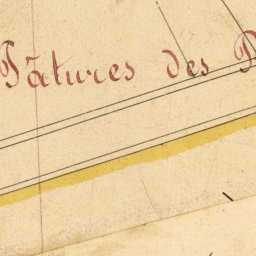 Pâtures des